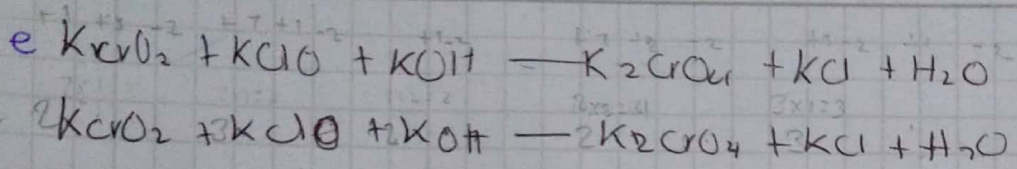 e KCrO₂ + KClO + KOH — K₂CrO₄ + KCl + H₂O
2KCrO₂ + 3KClO + 2KOH — 2K₂CrO₄ + 3KCl + H₂O